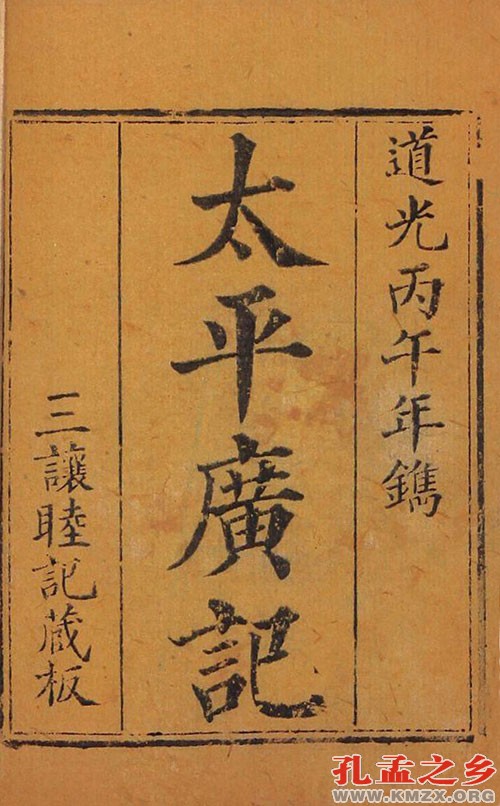 道光丙午年鐫
太平廣記
三讓睦記藏板
孔孟之乡
WWW.KMZX.ORG